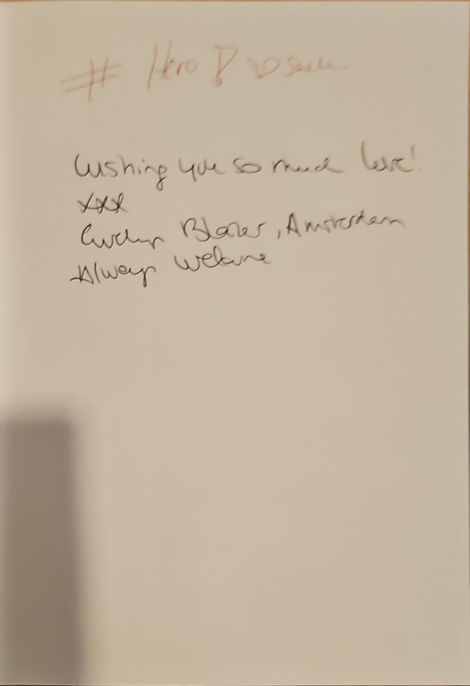 # Hero! ♡
Wishing you so much love!
xxx
Blazer, Amsterdam
Always welcome